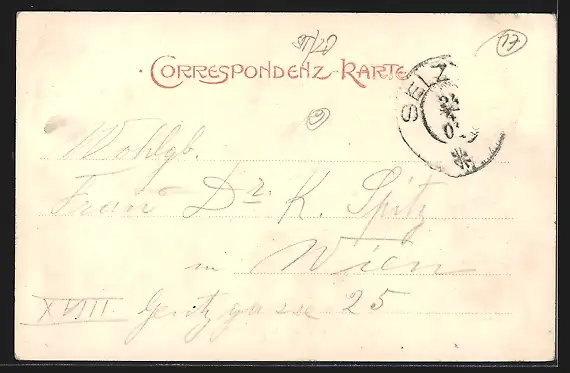 17
CORRESPONDENZ-KARTE
SELZ
Wohlgb.
Frau Dr. K. Spitz
in Wien
XVIII. Gentzgasse 25